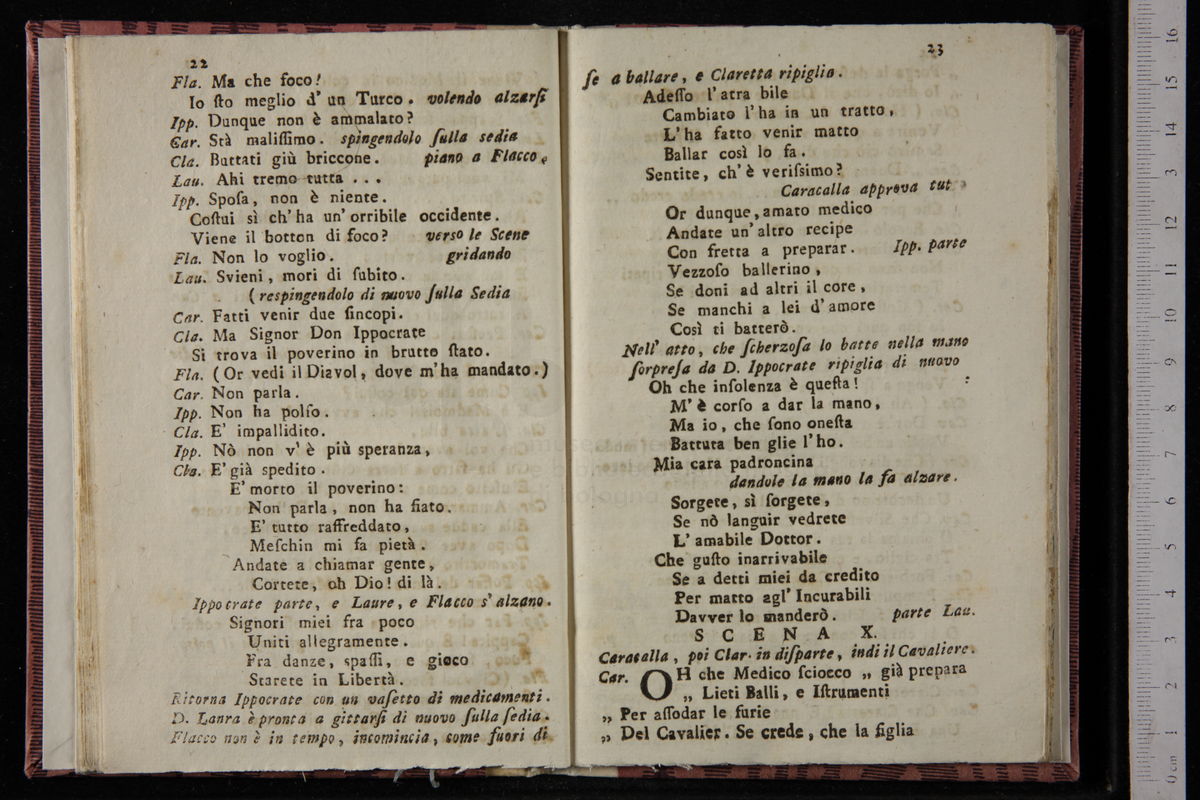 22
Fla. Ma che foco!
Io ſto meglio d' un Turco. volendo alzarſi
Ipp. Dunque non è ammalato?
Car. Stà maliſſimo. spingendolo ſulla sedia
Cla. Buttati giù briccone. piano a Flacco.
Lau. Ahi tremo tutta ...
Ipp. Spoſa, non è niente.
Coſtui sì ch' ha un' orribile occidente.
Viene il botton di foco? verso le Scene
Fla. Non lo voglio. gridando
Lau. Svieni, mori di ſubito.
(respingendolo di nuovo ſulla Sedia
Car. Fatti venir due ſincopi.
Cla. Ma Signor Don Ippocrate
Si trova il poverino in brutto ſtato.
Fla. (Or vedi il Diavol, dove m'ha mandato.)
Car. Non parla.
Ipp. Non ha polſo.
Cla. E' impallidito.
Ipp. Nò non v' è più speranza,
Cla. E' già spedito.
E' morto il poverino:
Non parla, non ha fiato.
E' tutto raffreddato,
Meſchin mi fa pietà.
Andate a chiamar gente,
Correte, oh Dio! di là.
Ippocrate parte, e Laure, e Flacco s' alzano.
Signori miei fra poco
Uniti allegramente.
Fra danze, spaſſi, e gioco
Starete in Libertà.
Ritorna Ippocrate con un vaſetto di medicamenti.
D. Laura è pronta a gittarſi di nuovo ſulla ſedia.
Flacco non è in tempo, incomincia, come fuori di
23
ſe a ballare, e Claretta ripiglia.
Adeſſo l' atra bile
Cambiato l' ha in un tratto,
L' ha fatto venir matto
Ballar così lo fa.
Sentite, ch' è veriſsimo?
Caracalla approva tut
Or dunque, amato medico
Andate un' altro recipe
Con fretta a preparar. Ipp. parte
Vezzoſo ballerino,
Se doni ad altri il core,
Se manchi a lei d' amore
Così ti batterò.
Nell' atto, che ſcherzoſa lo batte nella mano
ſorpreſa da D. Ippocrate ripiglia di nuovo
Oh che inſolenza è queſta!
M' è corſo a dar la mano,
Ma io, che ſono oneſta
Battuta ben glie l' ho.
Mia cara padroncina
dandole la mano la fa alzare.
Sorgete, sì ſorgete,
Se nò languir vedrete
L' amabile Dottor.
Che guſto inarrivabile
Se a detti miei da credito
Per matto agl' Incurabili
Davver lo manderò. parte Lau.
SCENA X.
Caracalla, poi Clar. in diſparte, indi il Cavaliere.
Car. OH che Medico ſciocco „ già prepara
„ Lieti Balli, e Iſtrumenti
„ Per aſſodar le furie
„ Del Cavalier. Se crede, che la figlia